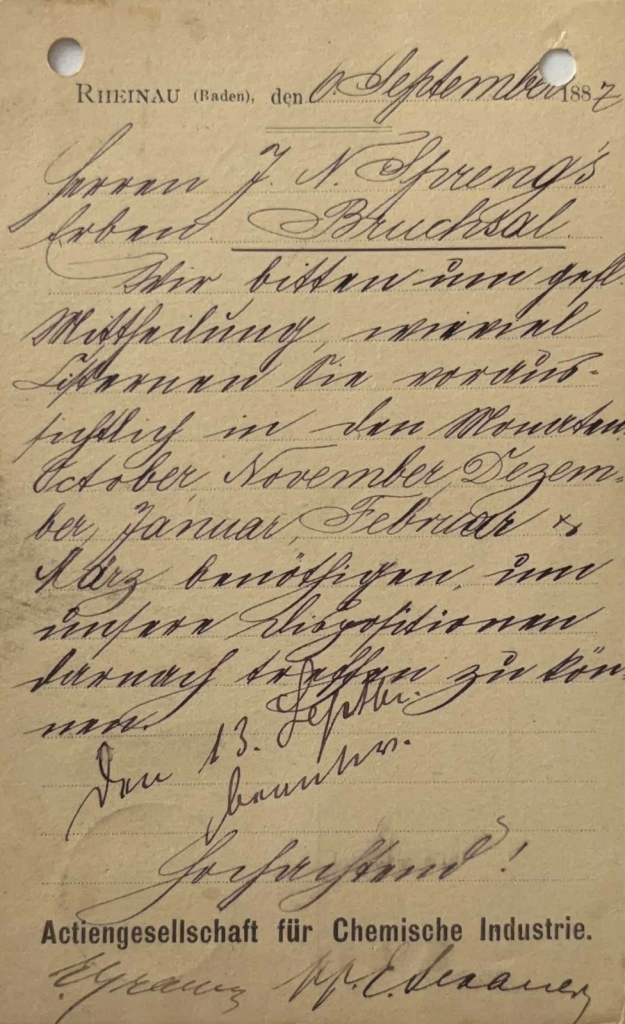 RHEINAU (Baden), den 6 September 1887
Herren J. N. Spreng's
Erben. Bruchsal.
Wir bitten um gefl.
Mittheilung, wieviel
Cisternen Sie voraus-
sichtlich in den Monaten
October, November, Dezem-
ber, Januar, Februar &
März benöthigen, um
unsere Dispositionen
darnach treffen zu kön-
nen.
Den 13. Septbr.
beantw.
Hochachtend!
Actiengesellschaft für Chemische Industrie.
pp. E.